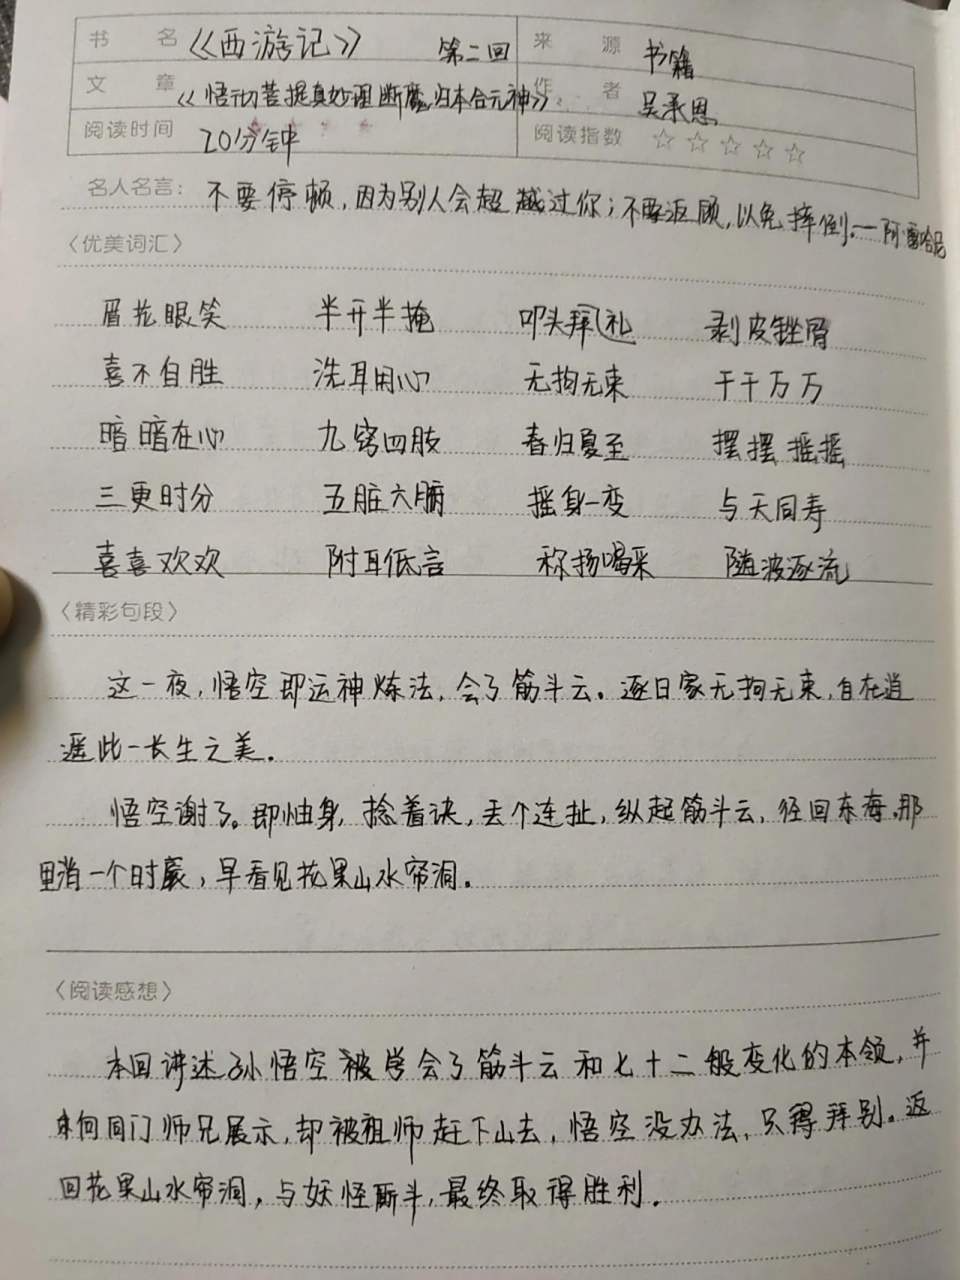 书名 《西游记》 第二回 来源 书籍
文章 《悟彻菩提真妙理 断魔归本合元神》 作者 吴承恩
阅读时间 20分钟 阅读指数 ☆☆☆☆☆
名人名言: 不要停顿,因为别人会超越过你;不要返顾,以免摔倒.—阿·雷哈尼
〈优美词汇〉
眉花眼笑 半开半掩 叩头拜礼 剥皮锉屑
喜不自胜 洗耳用心 无拘无束 千千万万
暗暗在心 九窍四肢 春归夏至 摆摆摇摇
三更时分 五脏六腑 摇身一变 与天同寿
喜喜欢欢 附耳低言 称扬喝采 随波逐流
〈精彩句段〉
这一夜,悟空即运神炼法,会了筋斗云。逐日家无拘无束,自在逍
遥此一长生之美.
悟空谢了。即抽身,捻着诀,丢个连扯,纵起筋斗云,径回东海.那
里消一个时辰,早看见花果山水帘洞。
〈阅读感想〉
本回讲述孙悟空被学会了筋斗云和七十二般变化的本领,并
向同门师兄展示,却被祖师赶下山去,悟空没办法,只得拜别。返
回花果山水帘洞,与妖怪厮斗,最终取得胜利.